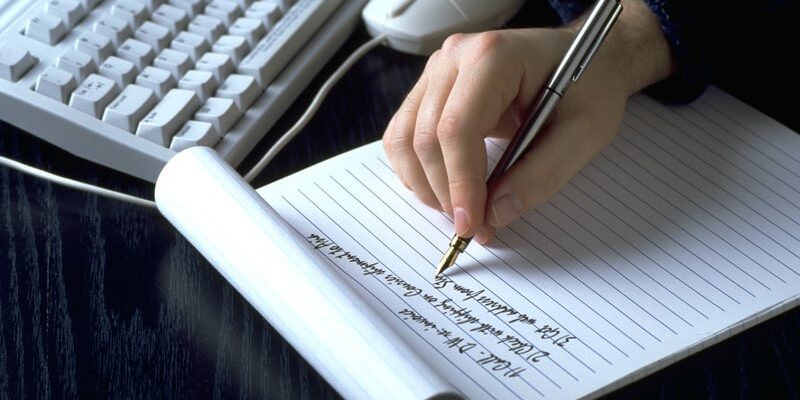 1) Call - DW re invoice
2) Check with shipping on shipment to Asia
3) Get address from